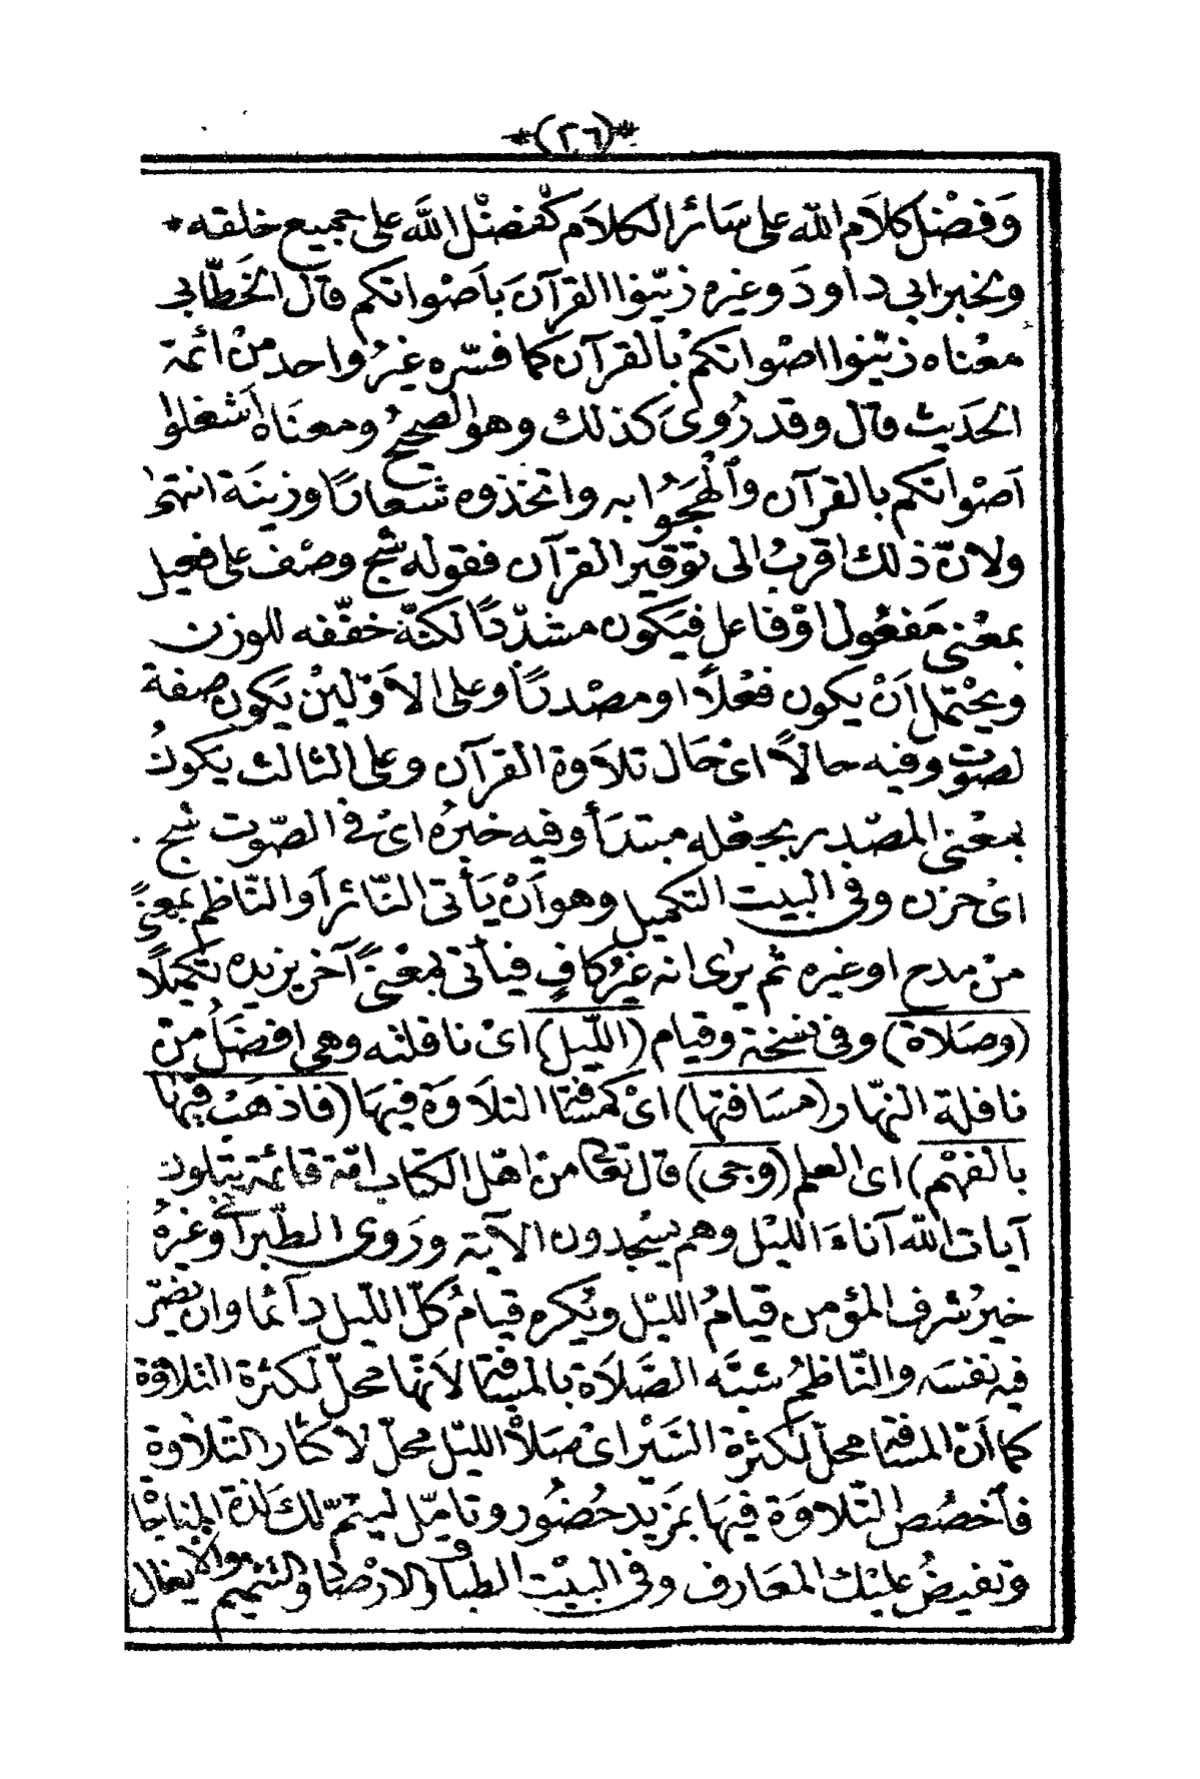 *(٢٦)*
وَفضْل كلاَم اللّه على سَائر الكلاَم كفضْل اللَّه على جميع خلقه *
ولخبر ابى داودَ وغيره زيّنوا القرآنَ بأَصْواتكم قال الخَطّابى
معْناه زيّنوا اصْواتكمْ بالقرآن كما فسّره غيرُ واحد منْ ائمة
الحَديث قال وقد رُوىَ كذلك وهو الصحيحُ ومعنَاه أَشغلوا
أصْواتكم بالقرآن وٱلْهَجُوا به واتخذوه شعارًا وزينَة انتهى
ولانّ ذلك اقربُ الى توقير القرآن فقوله شج وصْف على فعيل
بمعْنى مَفعُول اوْ فاعل فيَكون مشدّدًا لكنّه خفّفه للوزن
ويحْتمل أَنْ يكون فعْلاً او مصْدرًا وعلى الاَوّليْن يَكون صفة
لصوت وفيه حالاً اىْ حَال تلاَوة القرآن وعلى الثالث يَكونُ
بمعْنى المصْدر بجعْله مبتدَأ وفيه خبرُه اىْ فى الصّوت شج
اىْ حزن وفى البيت التكميل وهو أَنْ يَأتى النّاثر أو النّاظم بمعنًى
منْ مدح او غيره ثم يرى انه غيرُ كافٍ فيأتى بمعْنًى آخر يزيده تكميلًا
(وصَلاة) وفى نسْخة وقيام (اللّيل) اىْ نافلته وهى افضَلُ منْ
نافلة النّهار (مسَافتها) اىْ كمسافة التلاَوة فيهَا (فاذهَبْ فيها
بالفهْم) اى العلم (وجى) قال تعالى منْ اهْل الكتاب امّة قائمة يتْلون
آيات اللّه آناءَ الليْل وهم يسْجدون الآية ورَوى الطّبرانىّ وغيرُهُ
خبرُ شرف المؤمن قيَامُ الليْل ويُكره قيَامُ كلّ اللّيل دَآئما وان يضرّ
فيه نفسَه والنّاظمُ شبَّه الصَّلاَة بالمسَافة لاَنهَا محلّ لكثرة التلاوَة
كما أَنّ المسَافة محلّ لكثرة السّير اىْ صَلاة اللّيل محلّ لاكثار التّلاوة
فٱخصُص التّلاوَة فيهَا بمَزيد حُضُور وتامّل ليتمّ لكَ لذة المناجاة
وتفيضُ عليْك المعَارف وفى البيْت الطباق والارْصَاد والتتْميم موالايغال